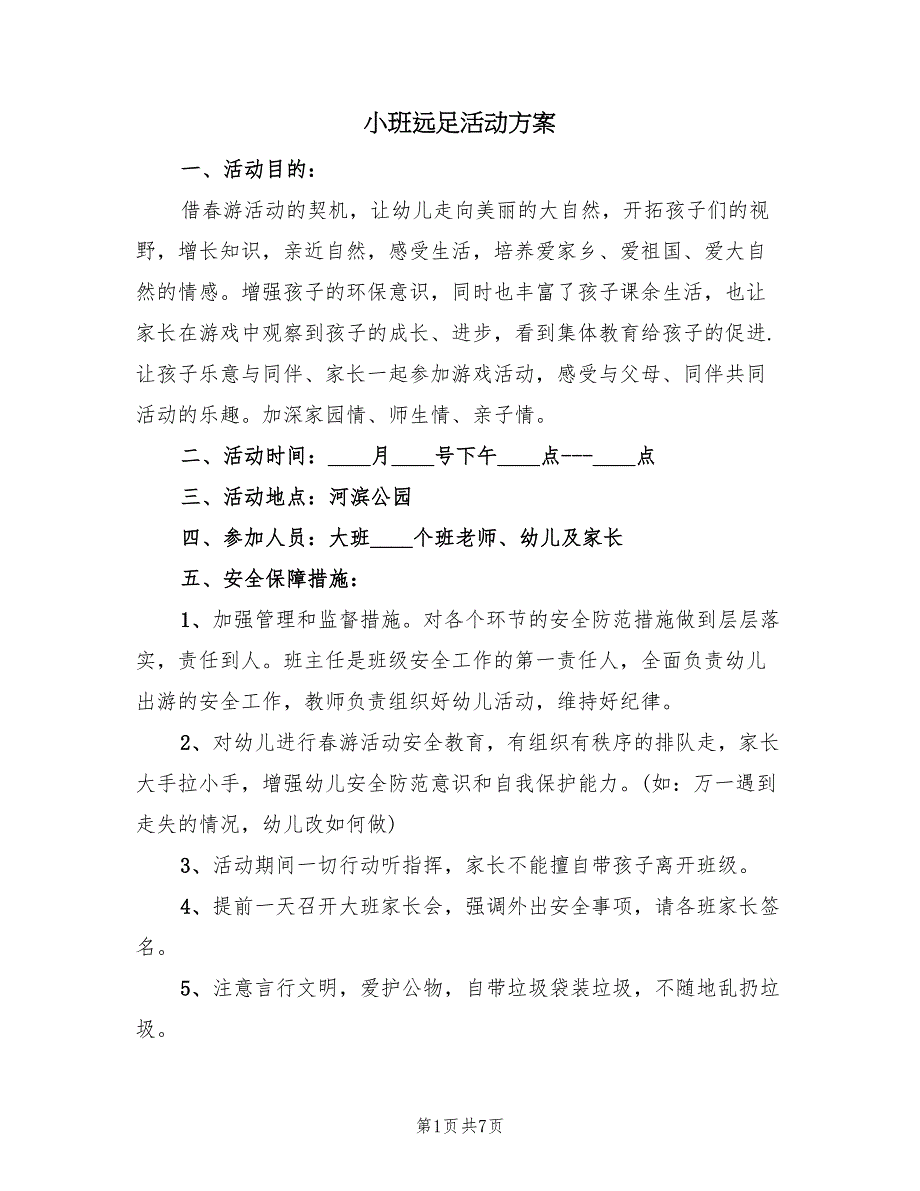 小班远足活动方案
一、活动目的：
借春游活动的契机，让幼儿走向美丽的大自然，开拓孩子们的视
野，增长知识，亲近自然，感受生活，培养爱家乡、爱祖国、爱大自
然的情感。增强孩子的环保意识，同时也丰富了孩子课余生活，也让
家长在游戏中观察到孩子的成长、进步，看到集体教育给孩子的促进.
让孩子乐意与同伴、家长一起参加游戏活动，感受与父母、同伴共同
活动的乐趣。加深家园情、师生情、亲子情。
二、活动时间：____月____号下午____点---____点
三、活动地点：河滨公园
四、参加人员：大班____个班老师、幼儿及家长
五、安全保障措施：
1、加强管理和监督措施。对各个环节的安全防范措施做到层层落
实，责任到人。班主任是班级安全工作的第一责任人，全面负责幼儿
出游的安全工作，教师负责组织好幼儿活动，维持好纪律。
2、对幼儿进行春游活动安全教育，有组织有秩序的排队走，家长
大手拉小手，增强幼儿安全防范意识和自我保护能力。(如：万一遇到
走失的情况，幼儿改如何做)
3、活动期间一切行动听指挥，家长不能擅自带孩子离开班级。
4、提前一天召开大班家长会，强调外出安全事项，请各班家长签
名。
5、注意言行文明，爱护公物，自带垃圾袋装垃圾，不随地乱扔垃
圾。
第1页共7页